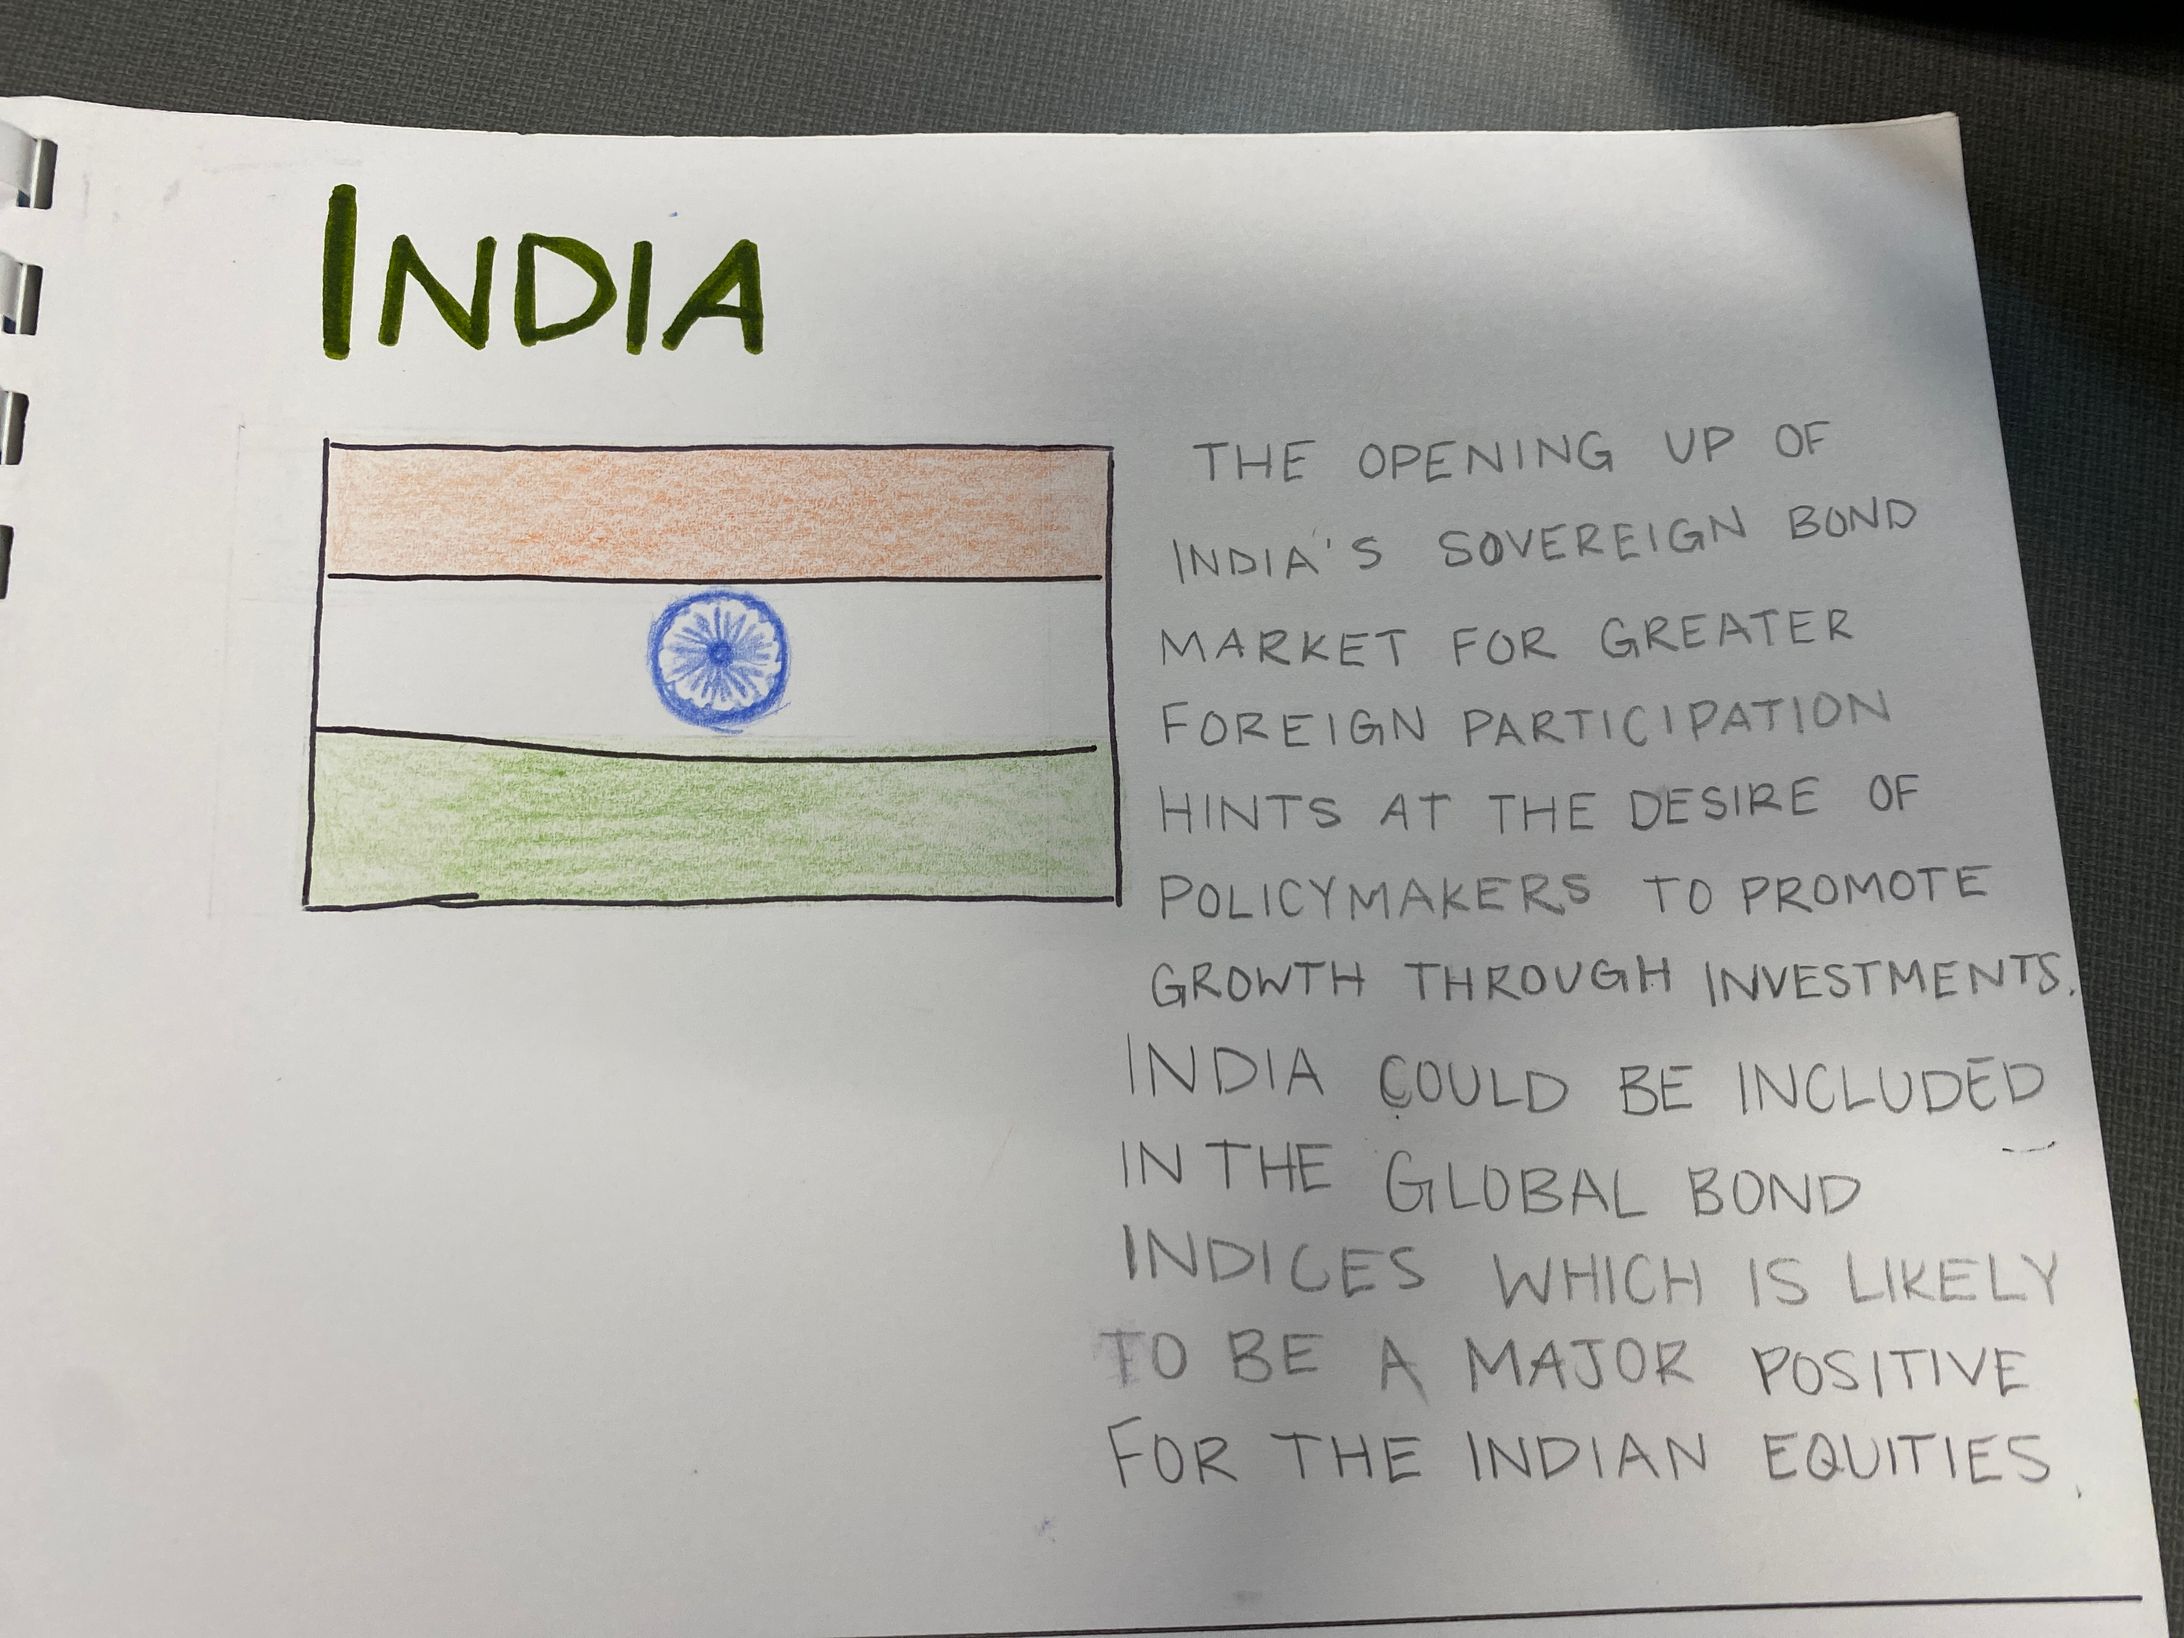 INDIA
THE OPENING UP OF
INDIA'S SOVEREIGN BOND
MARKET FOR GREATER
FOREIGN PARTICIPATION
HINTS AT THE DESIRE OF
POLICYMAKERS TO PROMOTE
GROWTH THROUGH INVESTMENTS.
INDIA COULD BE INCLUDED
IN THE GLOBAL BOND
INDICES WHICH IS LIKELY
TO BE A MAJOR POSITIVE
FOR THE INDIAN EQUITIES.